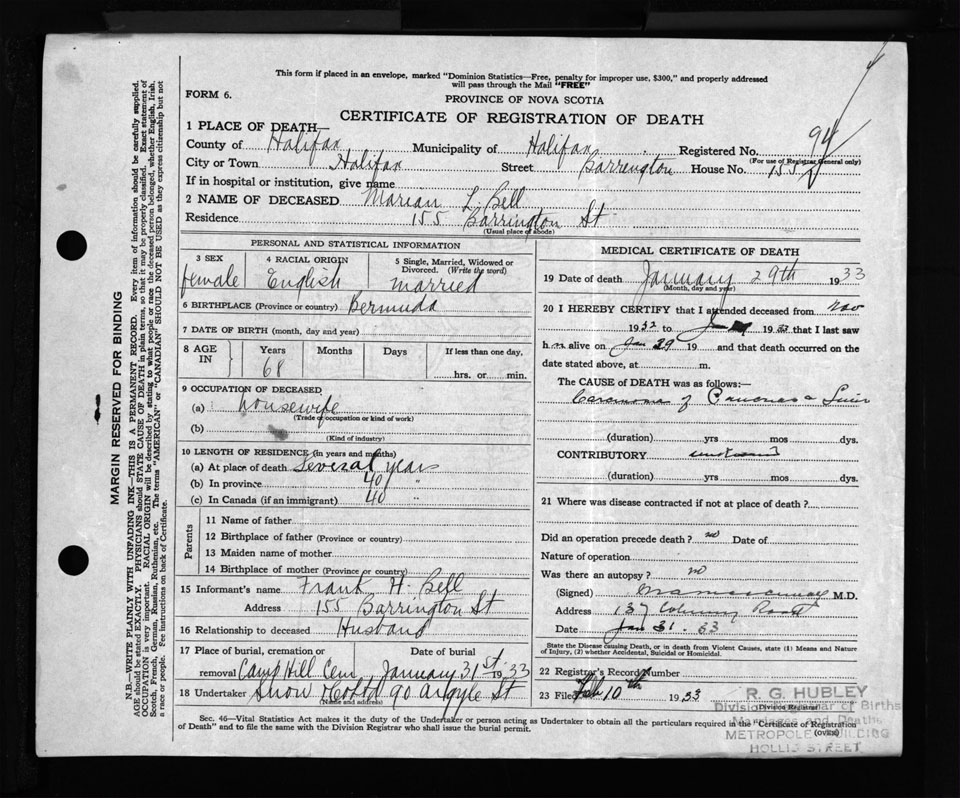 This form if placed in an envelope, marked "Dominion Statistics—Free, penalty for improper use, $300," and properly addressed
will pass through the Mail "FREE"
FORM 6.
PROVINCE OF NOVA SCOTIA
CERTIFICATE OF REGISTRATION OF DEATH
94
1 PLACE OF DEATH—
County of Halifax Municipality of Halifax Registered No.
(For use of Registrar General only)
City or Town Halifax Street Barrington House No. 155
If in hospital or institution, give name
2 NAME OF DECEASED Marian L. Bell
Residence 155 Barrington St
(Usual place of abode)
PERSONAL AND STATISTICAL INFORMATION
3 SEX 4 RACIAL ORIGIN 5 Single, Married, Widowed or
Divorced. (Write the word)
female English married
6 BIRTHPLACE (Province or country) Bermuda
7 DATE OF BIRTH (month, day and year)
8 AGE IN Years Months Days If less than one day,
68 hrs. or min.
9 OCCUPATION OF DECEASED
(a) housewife
(Trade occupation or kind of work)
(b)
(Kind of industry)
10 LENGTH OF RESIDENCE (in years and months)
(a) At place of death Several years
(b) In province 40 "
(c) In Canada (if an immigrant) 40
Parents
11 Name of father
12 Birthplace of father (Province or country)
13 Maiden name of mother
14 Birthplace of mother (Province or country)
15 Informant's name Frank H. Bell
Address 155 Barrington St
16 Relationship to deceased Husband
17 Place of burial, cremation or Date of burial
removal Camp Hill Cem January 31st 1933
18 Undertaker Snow 90 Argyle St
(Name and address)
MEDICAL CERTIFICATE OF DEATH
19 Date of death January 29th 1933
(Month, day and year)
20 I HEREBY CERTIFY that I attended deceased from Nov
1932 to Jan 1933 that I last saw
h alive on Jan 29 19 and that death occurred on the
date stated above, at m.
The CAUSE OF DEATH was as follows:—
Carcinoma of Pancreas & Liver
(duration) yrs mos dys.
CONTRIBUTORY
(duration) yrs mos dys.
21 Where was disease contracted if not at place of death?
Did an operation precede death? no Date of
Nature of operation
Was there an autopsy? no
(Signed) M.D.
Address 137 Road
Date Jan 31. 33
State the Disease causing Death, or in death from Violent Causes, state (1) Means and Nature
of Injury, (2) whether Accidental, Suicidal or Homicidal.
22 Registrar's Record Number
23 Filed Feb 10th 1933
(Division Registrar)
R. G. HUBLEY
Division Registrar of Births
Marriages and Deaths
METROPOLE BUILDING
HOLLIS STREET
Sec. 46—Vital Statistics Act makes it the duty of the Undertaker or person acting as Undertaker to obtain all the particulars required in the "Certificate of Registration
of Death" and to file the same with the Division Registrar who shall issue the burial permit. (OVER)
MARGIN RESERVED FOR BINDING
N.B.—WRITE PLAINLY WITH UNFADING INK—THIS IS A PERMANENT RECORD. Every item of information should be carefully supplied.
AGE should be stated EXACTLY. PHYSICIANS should STATE CAUSE OF DEATH in plain terms, so that it may be properly classified. Exact statement of
OCCUPATION is very important. RACIAL ORIGIN will be described by stating to what people or race the deceased person belonged, whether English, Irish,
Scotch, French, German, Russian, Ruthenian, etc. The terms "AMERICAN" or "CANADIAN" SHOULD NOT BE USED as they express citizenship but not
a race or people. See instructions on back of Certificate.